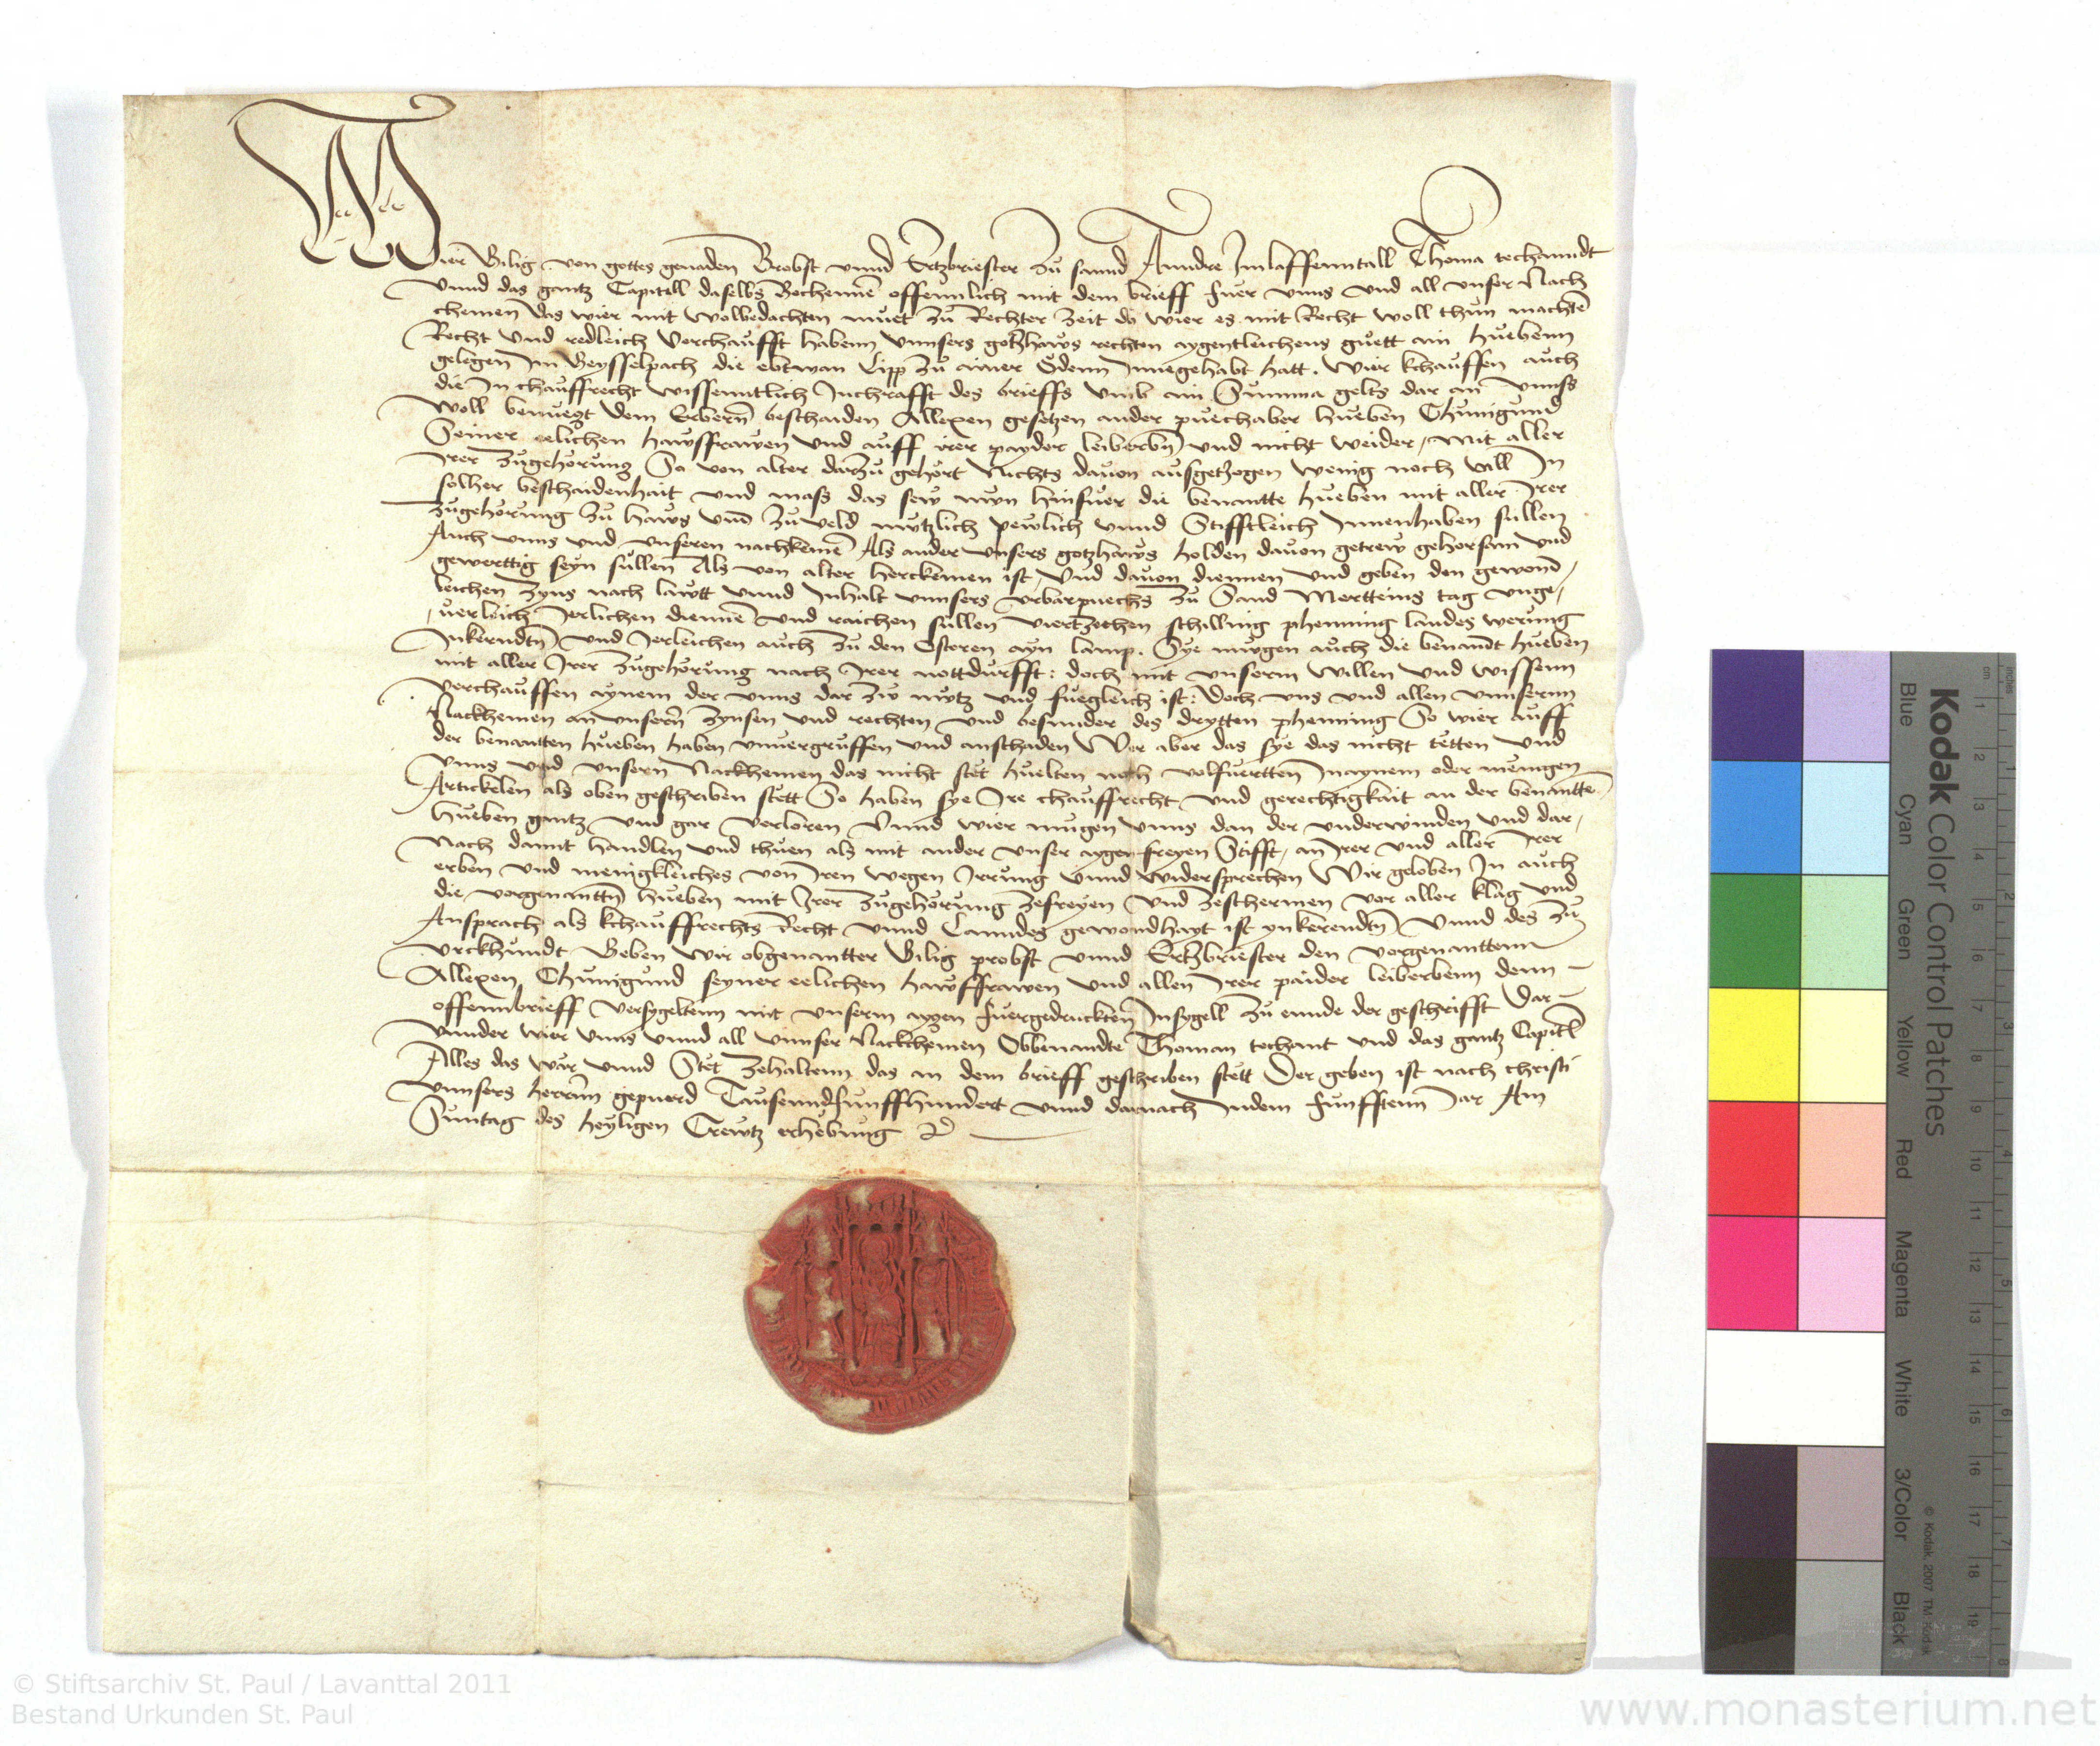 Wier Vilig von gottes genaden Brobst vnnd Ertzbriester zu sannd Anndre Imlaffenntall Thoma techanndt
Vnnd das gantz Capitell daselbs Bechennē offennlich mit dem brieff fuer vnns vnd all vnser Nach
chemen das wier mit wolbedachten muet zu Rechter zeit do wier es mit Recht woll thun machtē
Recht vnd redleich verchaufft habenn vnnsers gotzhaws rechten aygentleichens guett ain huebenn
gelegen In Reysselpach die ebtwan Lipp zu ainer Odenn Innegehabt hatt. Wier kchauffen auch
die In chauffrecht wissenntlich Inchrafft des brieffs vmb ain Summa gelts dar an vnnss
woll benuegt dem Erbern beschaiden Allexen gesetzen ander puechaber hueben Chunigund
Seiner eelichen hawsfrawen vnd auff irer payder leiberbn vnd nicht weider, mit aller
Irer zugehorung So von alter darzu gehort Nichts dauon ausgetzogen wenig noch vill In
solher beschaidenhait vnd mass das sew nwn hinfuer die benantte hueben mit aller Irer
zugehorung zu haws vnd zuveld nutzlich pewlich vnnd Stifftleich Innenhaben sullen
Auch vnns vnd vnseren nachkemē Als ander vnsers gotzhaws holden dauon getrew gehorsam vnd
gewerttig seyn sullen Als von alter herckemen ist, Vnd dauon diennen vnd geben den gewond,
leichen Zyns nach lawtt vnnd Inhalt vnnsers vrbarpuechs zu Sand Mertteins tag vnge,
uerleich Ierlichen diennē vnd raichen sullen viertzechen schilling phenning landes werung
Inkerndtn vnd Ierleichen auch zu den Osteren ayn lamp. Sye mugen auch die benandt hueben
mit aller Irer zugehorung nach Irer nottdurfft: doch mit vnserm willen vnd wissenn
verchauffen aynem der vnns dar zw nutz vnd fuegleich ist: Doch vns vnd allen vnnsernn
Nackhemen an vnsern zynsen vnd rechten vnd besunder des drytten phenning So wier auff
der benantten hueben haben vnuergruffen vnd anschaden Wer aber das sye das nicht tetten vnd
vnns vnd vnsern Nackhemen das nicht stet huelten noch volfuertten Inaynem oder menigen
Artickelen als oben geschriben stett So haben sye Ire chauffrecht vnd gerechtigkait an der benantte
hueben gantz vnd gar verloren Vnnd wier mugen vnns dan der vnderwinden vnd dar,
Nach damit handlen vnd thuen als mit ander vnser aygen freyen Stifft, an Irer vnd aller Irer
erben vnd menigkleiches von Iren wegen Irrung vnnd widersprechen Wir geloben In auch
die vorgenanttn hueben mit Irer zugehorung zefreyen vnd zeschermen vor aller klag vnd
Ansprach als kchauffrechts Recht vnnd Lanndes gewondhayt ist ynkerendtn Vnnd des zu
vrckhundt Geben wir obgenantter Vilig probst vnnd Ertzbriester den vorgenanttenn
Allexen Chunigund seyner eelichen hawsfrawen vnd allen Irer paider leiberbenn denn
offennbrieff versygeltenn mit vnserm aygen fuergedruckten Insygell zu ennde der geschrifft Dar
vnnder wier vnns vnnd all vnnser Nackchemen Obbenandte Thoman techant vnd das gantz Capitl
Alles das war vnnd Stet zehaltenn das an dem brieff geschriben stett Der geben ist nach christi
vnnsers herrnn gepuerd Tausenndfunffhundert vnnd darnach Indem funfftenn Iar Am
Suntag des heyligen Crewtz erhebung
Kodak Color Control Patches
Blue Cyan Green Yellow Red Magenta White 3/Color Black
© Kodak, 2007 TM: Kodak
inches 1 2 3 4 5 6 7 8
cm 1 2 3 4 5 6 7 8 9 10 11 12 13 14 15 16 17 18 19
© Stiftsarchiv St. Paul / Lavanttal 2011
Bestand Urkunden St. Paul
www.monasterium.net